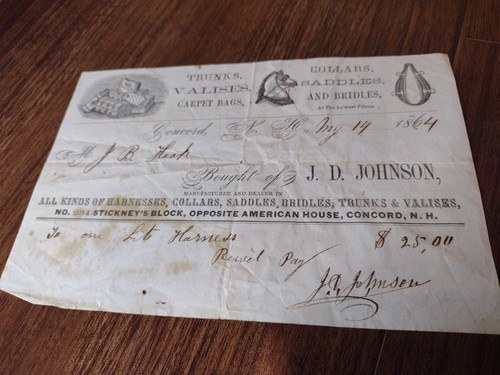 TRUNKS,
VALISES,
CARPET BAGS,
COLLARS,
SADDLES,
AND BRIDLES,
At The Lowest Prices.
Concord, N. H. My 14 1864
M J B Hook
Bought of J. D. JOHNSON,
MANUFACTURER AND DEALER IN
ALL KINDS OF HARNESSES, COLLARS, SADDLES, BRIDLES; TRUNKS & VALISES,
NO. STICKNEY'S BLOCK, OPPOSITE AMERICAN HOUSE, CONCORD, N. H.
To one Harness $ 25,00
Pay
J. D. Johnson